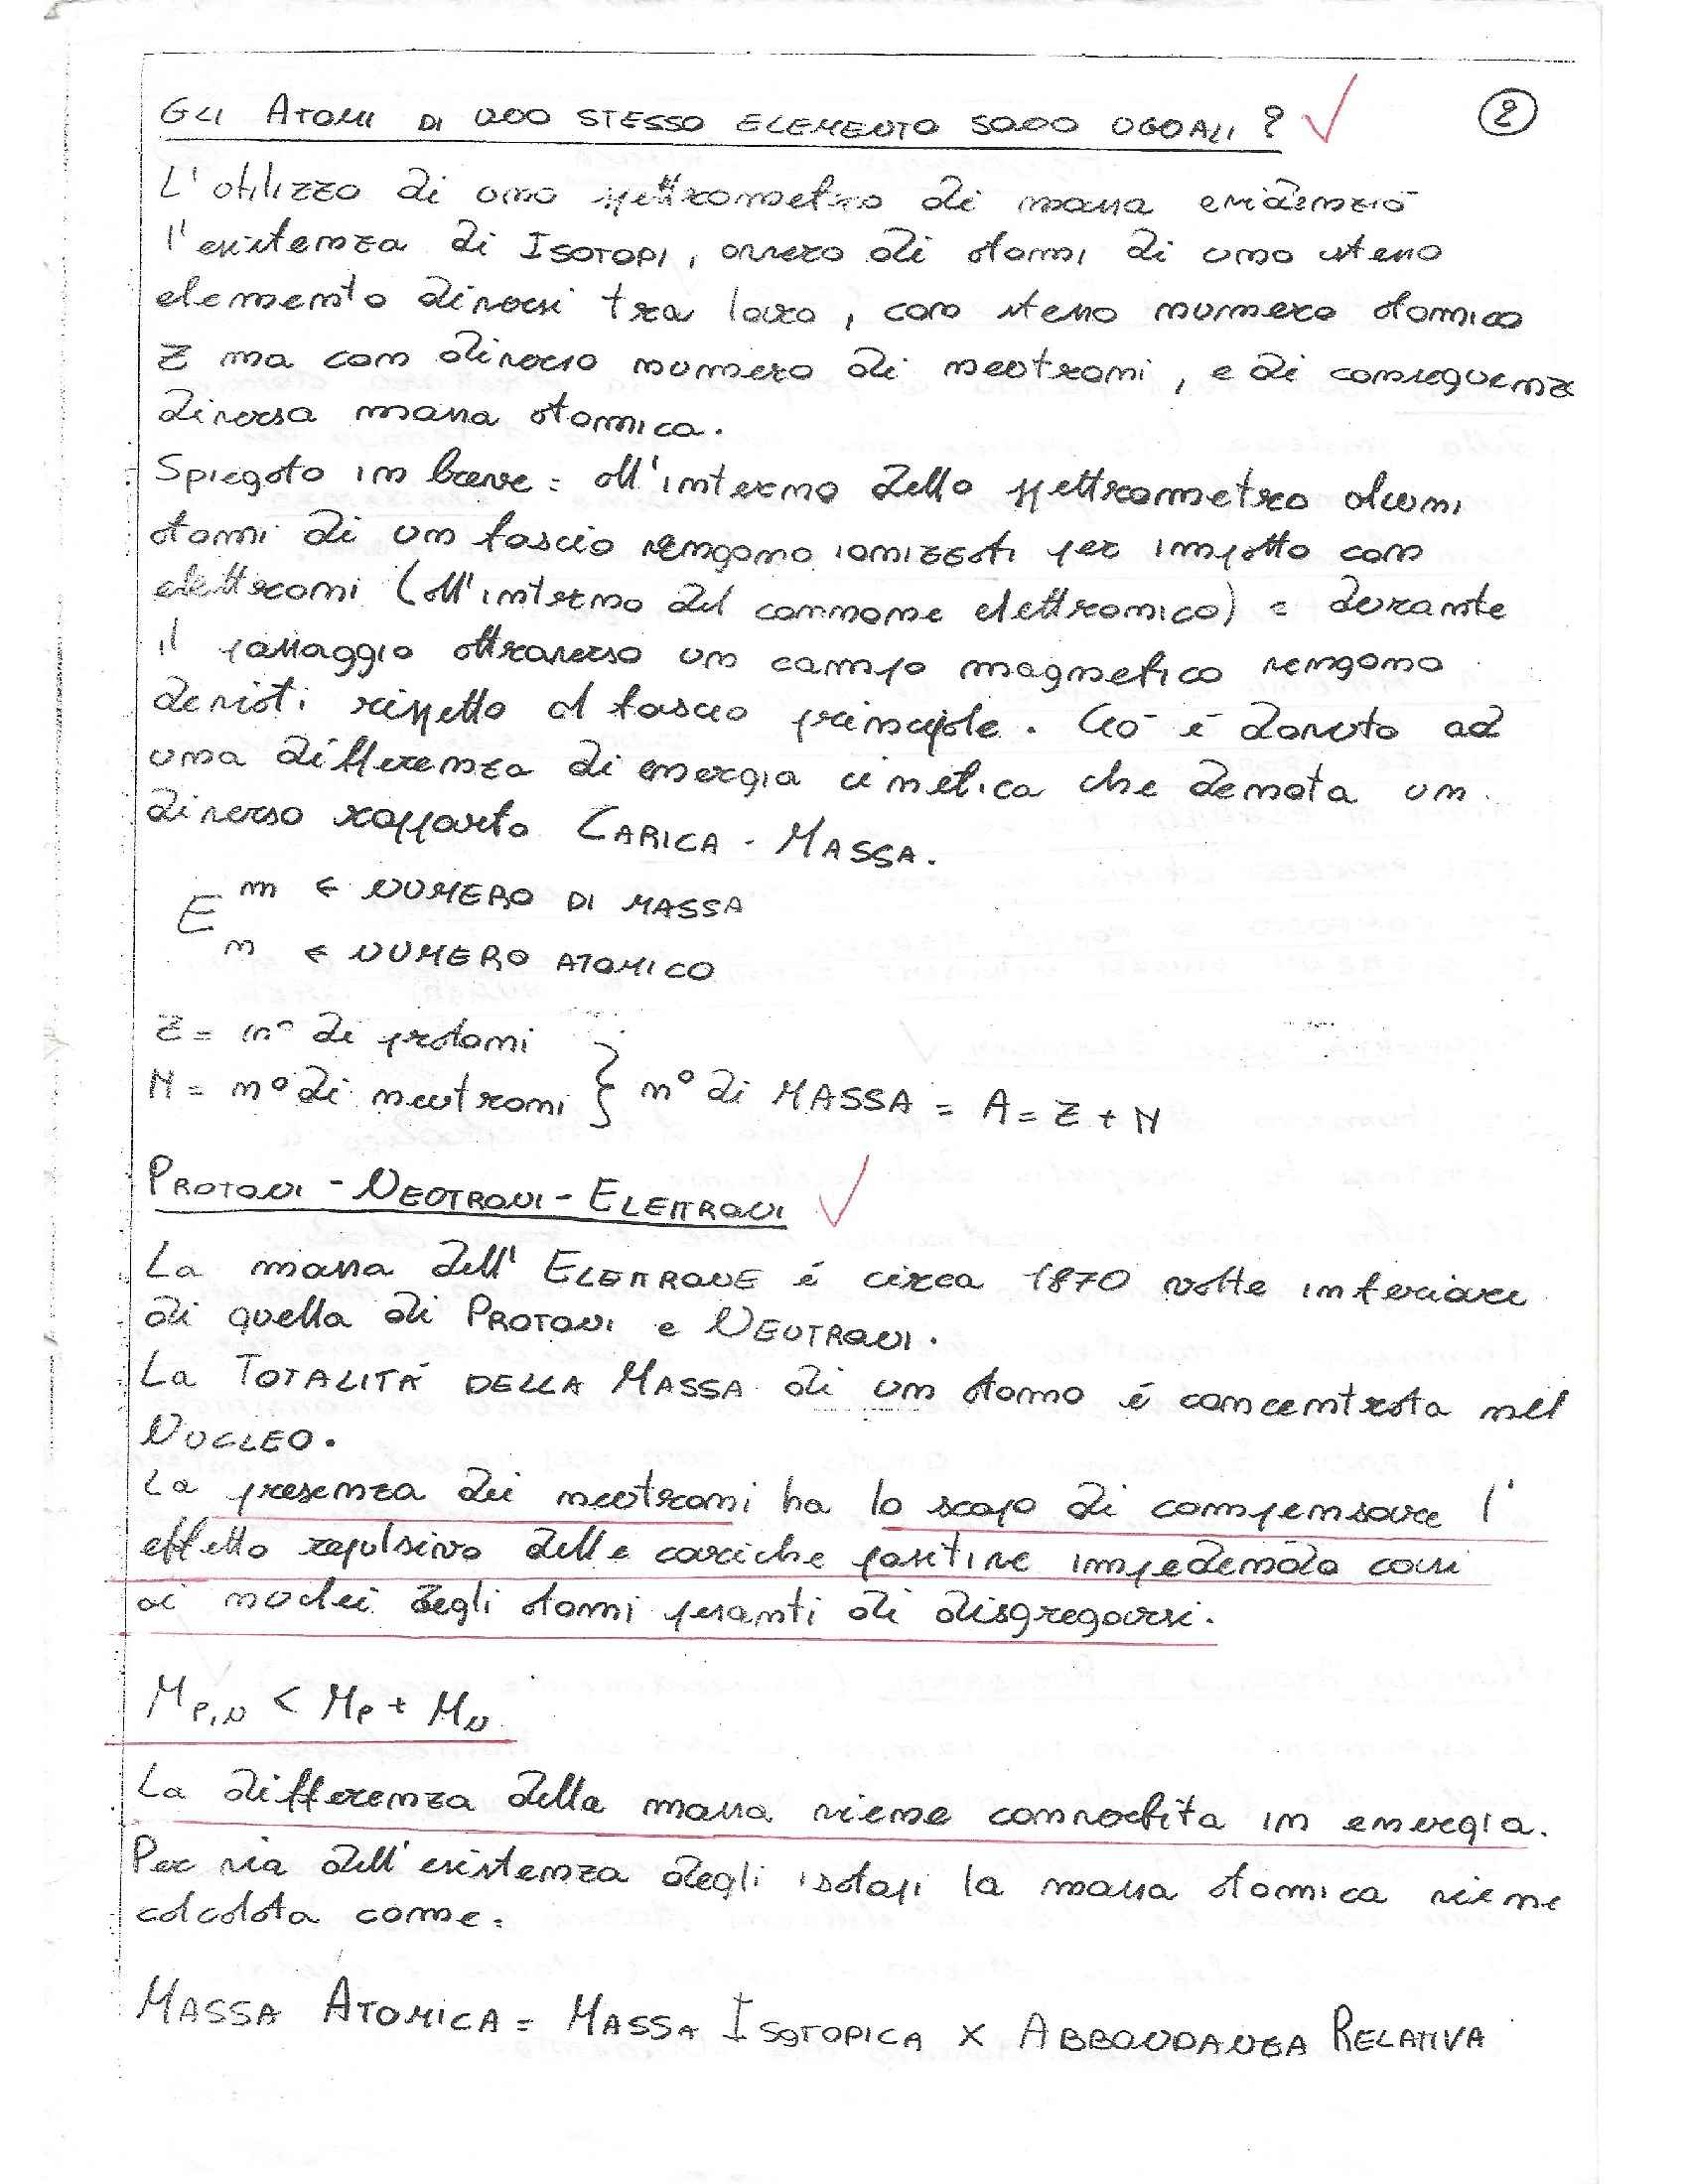 GLI ATOMI DI UNO STESSO ELEMENTO SONO UGUALI ? ✓ 2
L'utilizzo di uno spettrometro di massa evidenziò
l'esistenza di ISOTOPI, ovvero di atomi di uno stesso
elemento diversi tra loro, con stesso numero atomico
Z ma con diverso numero di neutroni, e di conseguenza
diversa massa atomica.
Spiegato in breve: all'interno dello spettrometro alcuni
atomi di un fascio vengono ionizzati per impatto con
elettroni (all'interno del cannone elettronico) : durante
il passaggio attraverso un campo magnetico vengono
deviati rispetto al fascio principale. Ciò è dovuto ad
una differenza di energia cinetica che denota un
diverso rapporto CARICA - MASSA.
E m ← NUMERO DI MASSA
n ← NUMERO ATOMICO
Z = n° di protoni
N = n° di neutroni } n° di MASSA = A = Z + N
PROTONI - NEUTRONI - ELETTRONI ✓
La massa dell' ELETTRONE è circa 1870 volte inferiore
di quella di PROTONI e NEUTRONI.
La TOTALITÀ DELLA MASSA di un atomo è concentrata nel
NUCLEO.
La presenza dei neutroni ha lo scopo di compensare l'
effetto repulsivo delle cariche positive impedendo così
ai nuclei degli atomi pesanti di disgregarsi.
MP,N < MP + MN
La differenza della massa viene convertita in energia.
Per via dell'esistenza degli isotopi la massa atomica viene
calcolata come:
MASSA ATOMICA = MASSA ISOTOPICA X ABBONDANZA RELATIVA